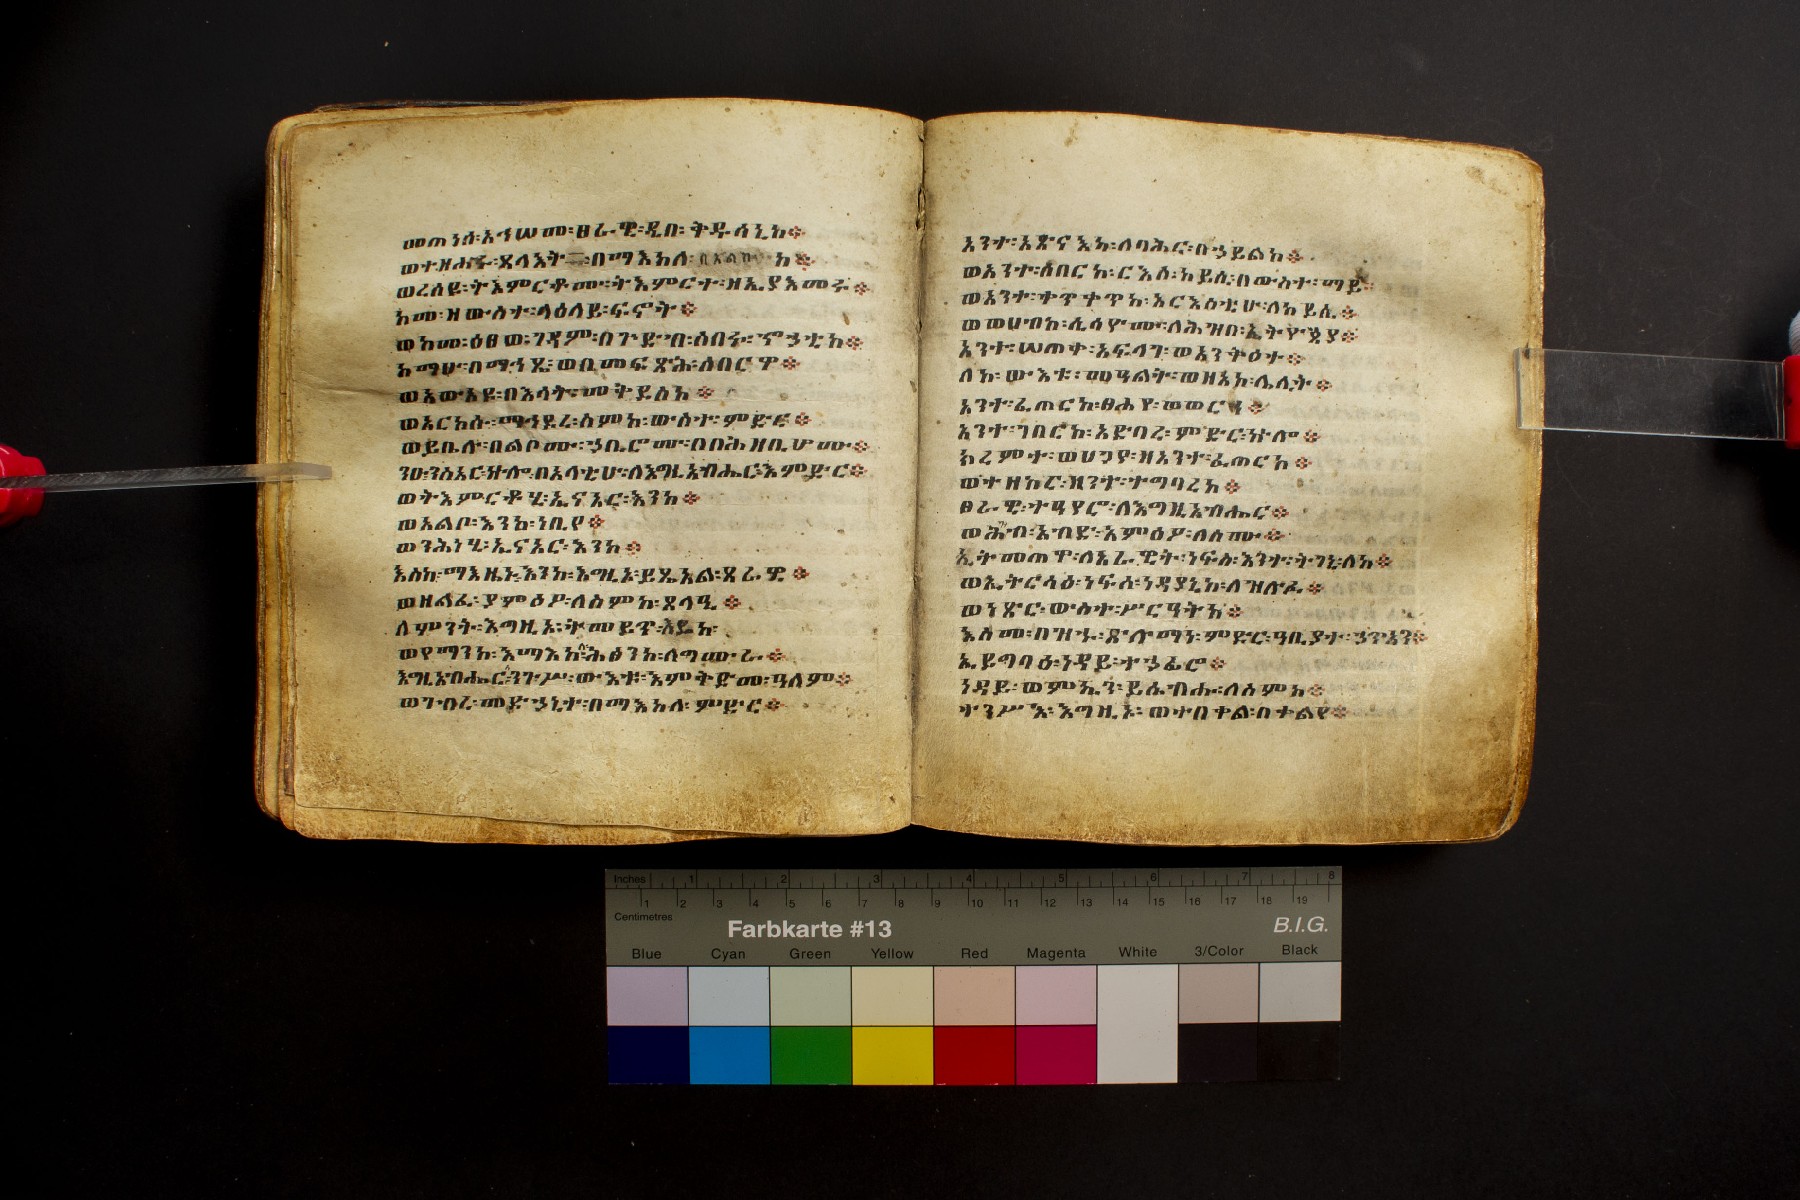 መጠነሰ፡አኅሠሙ፡ፀራዊ፡ዲበ፡ቅዱሳኒከ፨
ወተዝሐሩ፡ጸላእት፡በማእከለ፡በዓልከ፨
ወረሰዩ፡ትእምርቶሙ፡ትእምርተ፡ዘኢያእመሩ፨
ከመ፡ዘውስተ፡ላዕለይ፡ፍኖት፨
ወከመ፡ዕፀወ፡ገዳም፡በጉድብ፡ሰበሩ፡ኆኃቲከ፨
ከማሁ፡በማኅጼ፡ወበመፍጽሕ፡ሰበርዋ፨
ወአውአዩ፡በእሳት፡መቅደሰከ፨
ወአርከሱ፡ማኅደረ፡ስምከ፡ውስተ፡ምድር፨
ወይቤሉ፡በልቦሙ፡ኃቢሮሙ፡በበሕዘቢሆሙ፨
ንዑ፡ንስአር፡ኵሎ፡በአላቲሁ፡ለእግዚአብሔር፡እምድር፨
ወትእምርቶሂ፡ኢናአምር፡እንከ፨
ወአልቦ፡እንከ፡ነቢየ፨
ወንሕነሂ፡ኢናአምር፡እንከ፨
እስከ፡ማእዜኑ፡እንከ፡እግዚኦ፡ይጼአል፡ጸራዊ፨
ወዘልፈ፡ያምዕዖ፡ለስምከ፡ጸላዒ፨
ለምንት፡እግዚኦ፡ትመይጥ፡እዴከ፡
ወየማንከ፡እማእከለ፡ሕፅንከ፡ለግሙራ፨
እግዚአብሔርሰ፡ንጉሥ፡ውእቱ፡እምቅድመ፡ዓለም፨
ወገብረ፡መድኃኒተ፡በማእከለ፡ምድር፨
አንተ፡አጽናእካ፡ለባሕር፡በኃይልከ፨
ወአንተ፡ሰበርከ፡ርእሰ፡ከይሲ፡በውስተ፡ማይ፨
ወአንተ፡ቀጥቀጥከ፡አርእስቲሁ፡ለከይሲ፨
ወወሀብኮ፡ሲሳዮሙ፡ለሕዝበ፡ኢትዮጵያ፨
አንተ፡ሠጠቀ፡አፍላገ፡ወአንቅዕተ፨
ለከ፡ውእቱ፡መዓልት፡ወዘአከ፡ሌሊት፨
አንተ፡ፈጠርከ፡ፀሐየ፡ወወርኀ፨
አንተ፡ገበርከ፡አድባረ፡ምድር፡ኵሎ፨
ክረምተ፡ወሀጋየ፡ዘአንተ፡ፈጠርከ፨
ወተዘከር፡ዘንተ፡ተግባረከ፨
ፀራዊ፡ተዓየሮ፡ለእግዚአብሔር፨
ወሕዝብ፡አብድ፡አምዕዖ፡ለስሙ፨
ኢትመጠዋ፡ለአራዊት፡ነፍሰ፡እንተ፡ትገኒ፡ለከ፨
ወኢትርሳዕ፡ነፍሰ፡ነዳያኒከ፡ለዝሉፉ፨
ወነጽር፡ውስተ፡ሥርዓትከ፨
እስመ፡በዝኁ፡ጽሉማነ፡ምድር፡ዓቢያተ፡ኃጥአን፨
ኢይግባዕ፡ነዳይ፡ተኃፊሮ፨
ነዳይ፡ወምስኪን፡ይሴብሑ፡ለስምከ፨
ተንሥእ፡እግዚኦ፡ወተበቀል፡በቀልየ፨
Inches 1 2 3 4 5 6 7 8
1 2 3 4 5 6 7 8 9 10 11 12 13 14 15 16 17 18 19
Centimetres
Farbkarte #13
B.I.G.
Blue Cyan Green Yellow Red Magenta White 3/Color Black